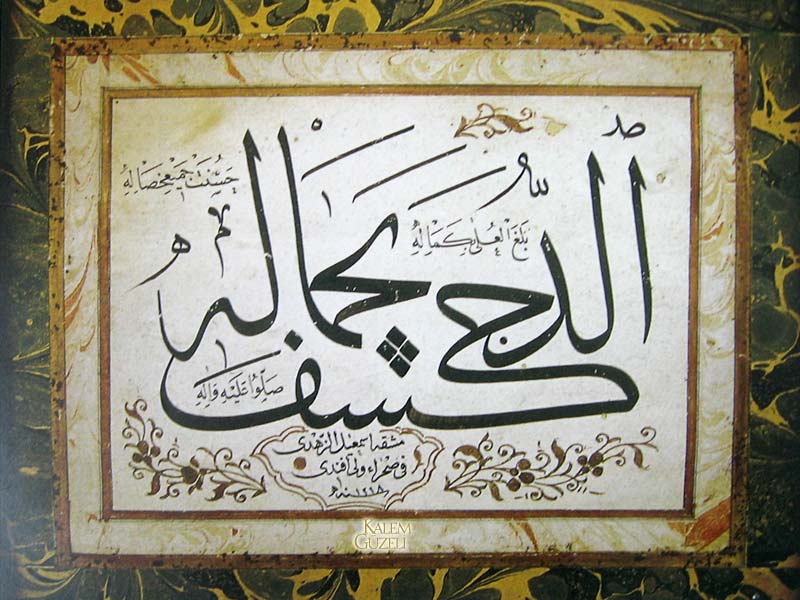 بَلَغَ الْعُلٰى بِكَمَالِهِ
كشف الدجى بجماله
حَسُنَتْ جَمِيعُ خِصَالِهِ
صَلُّوا عَلَيْهِ وَاٰلِهِ
مشقه اسمعيل الزهدى
فى صحراء ولى افندى
سنه
KALEM
GÜZELİ